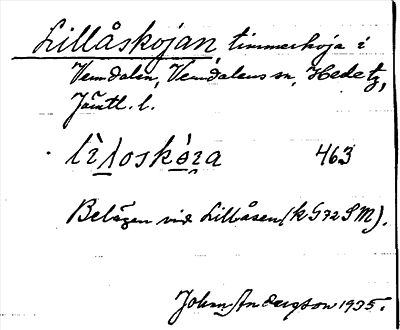 Lillåskojan, timmerkoja i
Vemdalen, Vemdalens sn, Hede tg,
Jämtl. l.
463
Belägen vid Lillåsen (k G 72 S M).
Johan Andersson 1935.